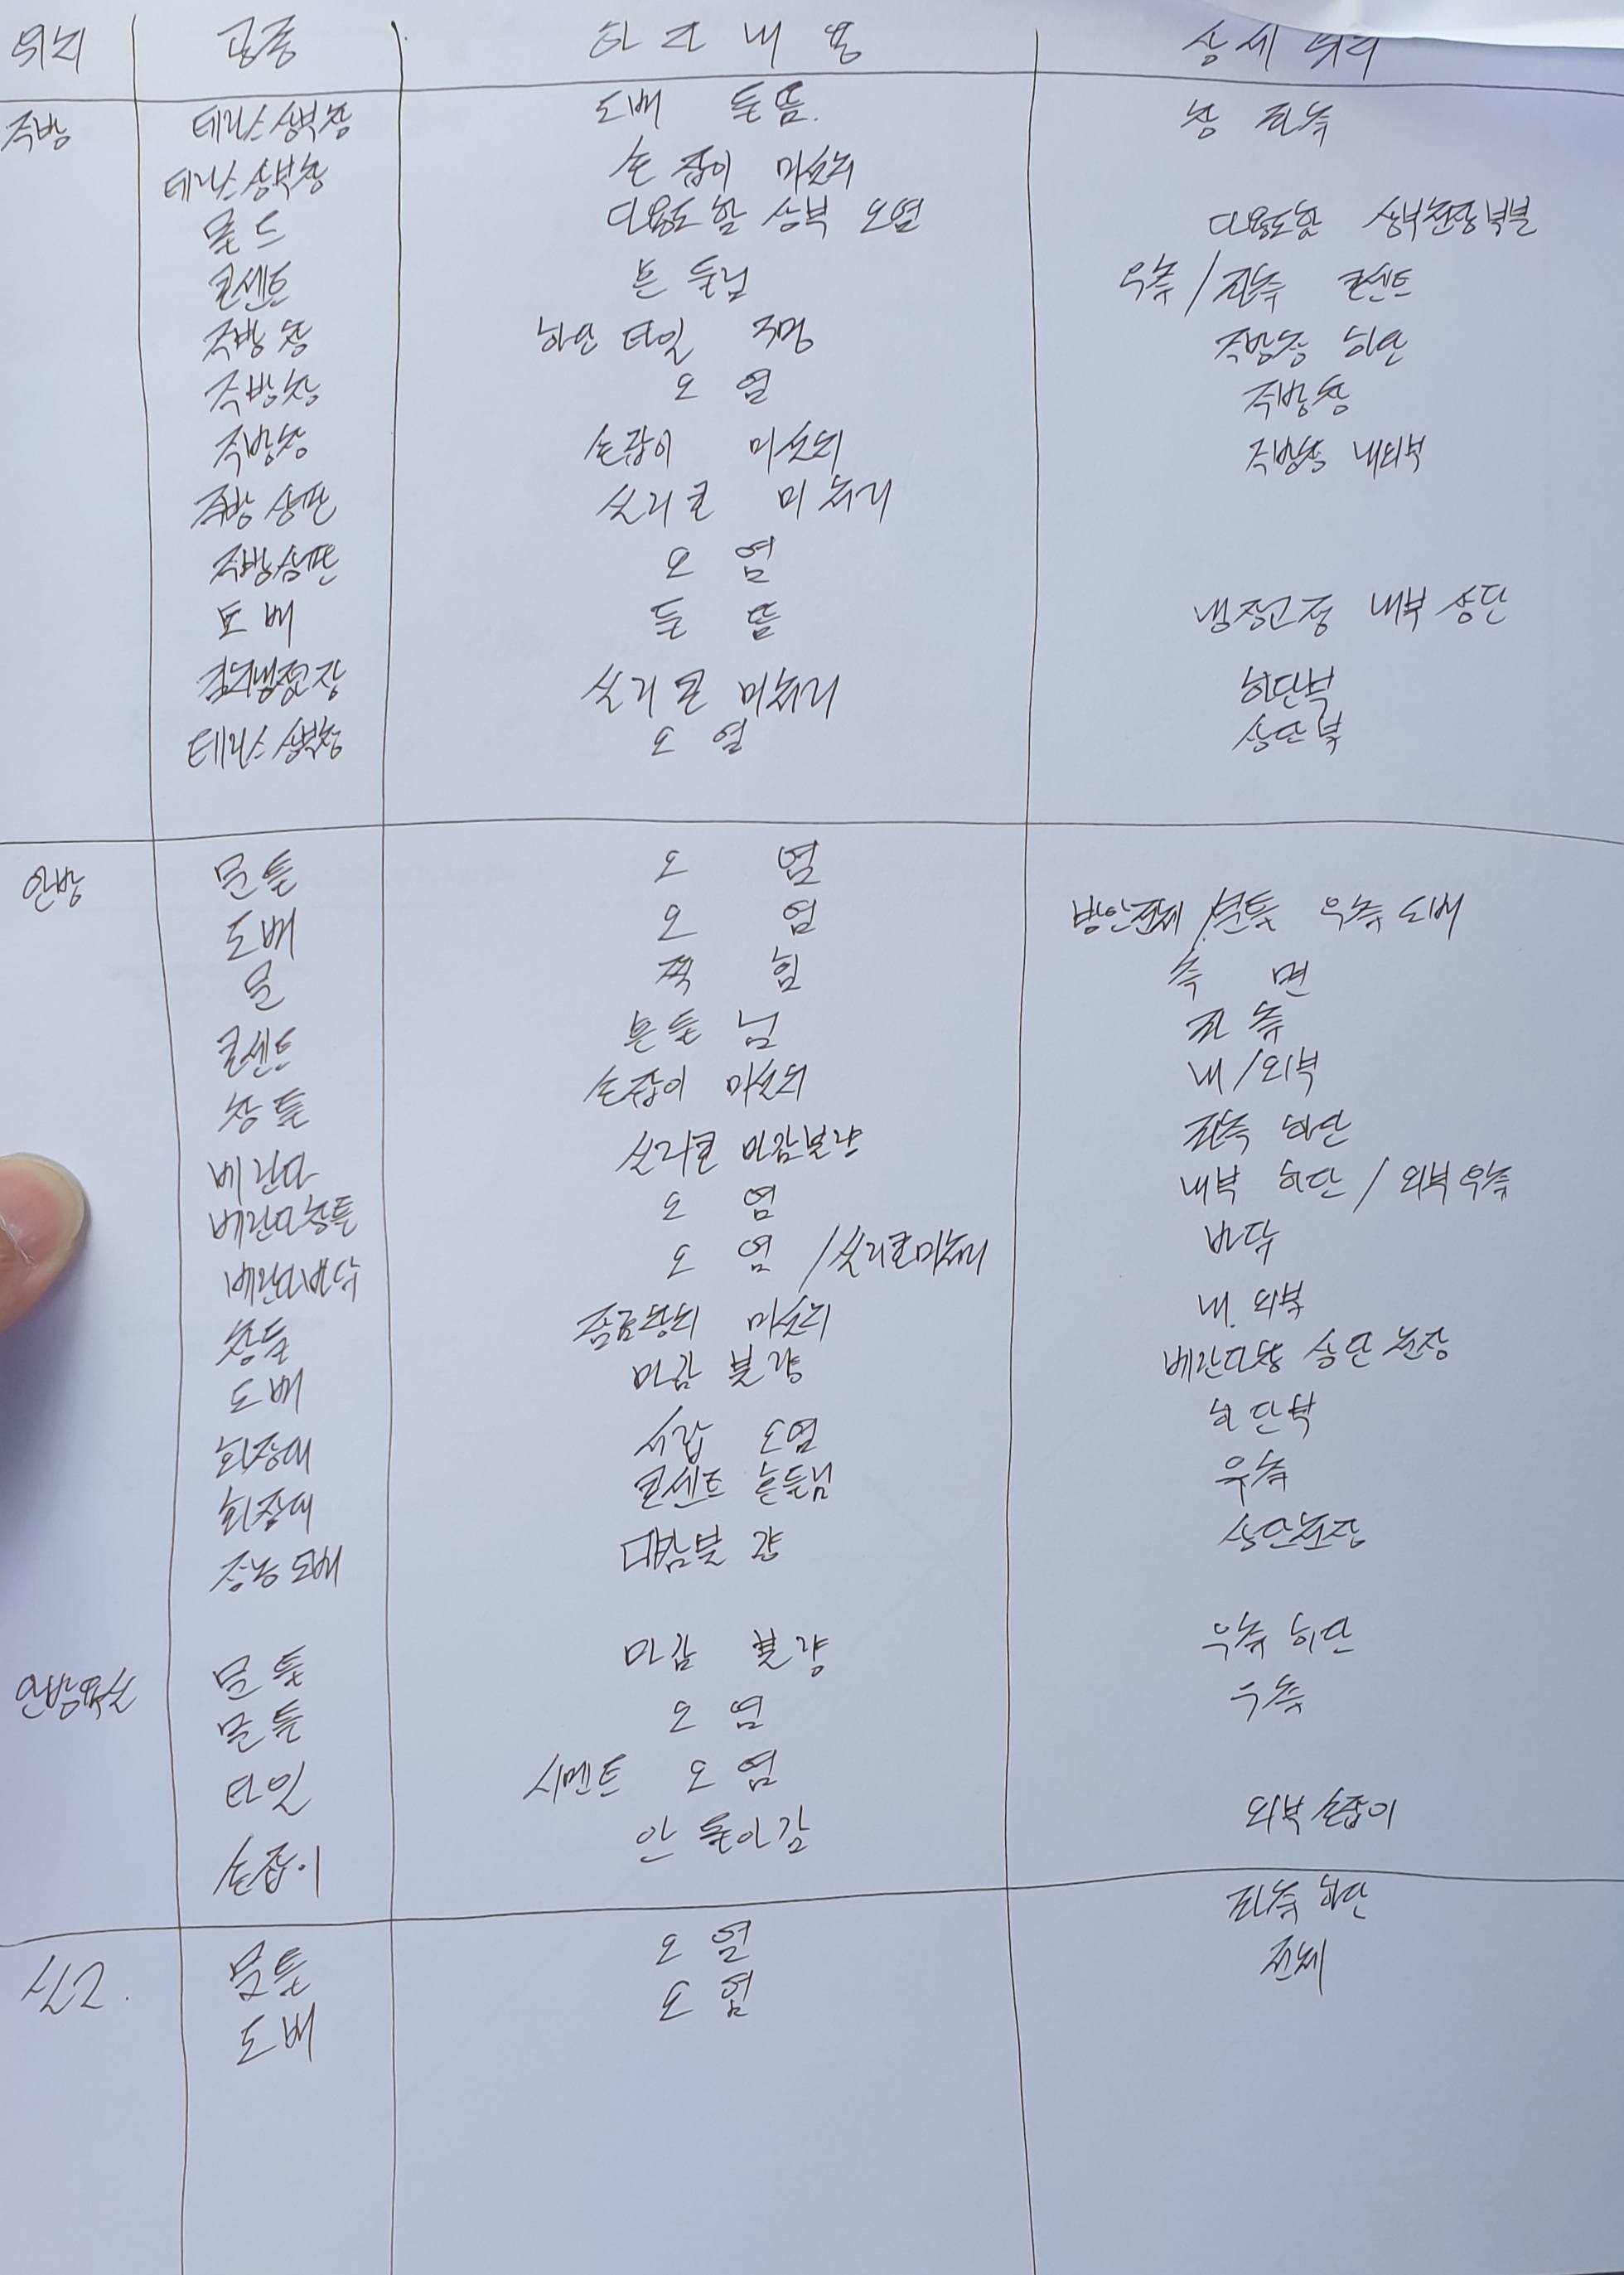 위치 공종 하자내용 상세위치
주방 테라스상부장 도배 들뜸. 창 좌측
테라스상부장 손잡이 미설치
몰드 다용도함 상부 오염 다용도함 상부천장부분
콘센트 흔들림 우측/좌측 콘센트
주방창 하단 타일 구멍 주방창 하단
주방창 오염 주방창
주방창 손잡이 미설치 주방창 내외부
주방상판 실리콘 미처리
주방상판 오염
도배 들뜸 냉장고장 내부 상단
김치냉장고장 실리콘 미처리 하단부
테라스상부장 오염 상단부
안방 문틀 오염
도배 오염 방안전체/문틀 우측 도배
문 찍힘 측면
콘센트 흔들림 좌측
창틀 손잡이 미설치 내/외부
베란다 실리콘 마감불량 좌측 하단
베란다창틀 오염 내부 하단/외부우측
베란다바닥 오염/실리콘미처리 바닥
창틀 잠금장치 미설치 내.외부
도배 마감불량 베란다창 상단 천장
화장대 서랍 오염 하단부
화장대 콘센트 흔들림 우측
장농도배 마감불량 상단천장
안방욕실 문틀 마감 불량 우측 하단
문틀 오염 우측
타일 시멘트 오염
손잡이 안 돌아감 외부 손잡이
실2. 문틀 오염 좌측 하단
도배 오염 전체